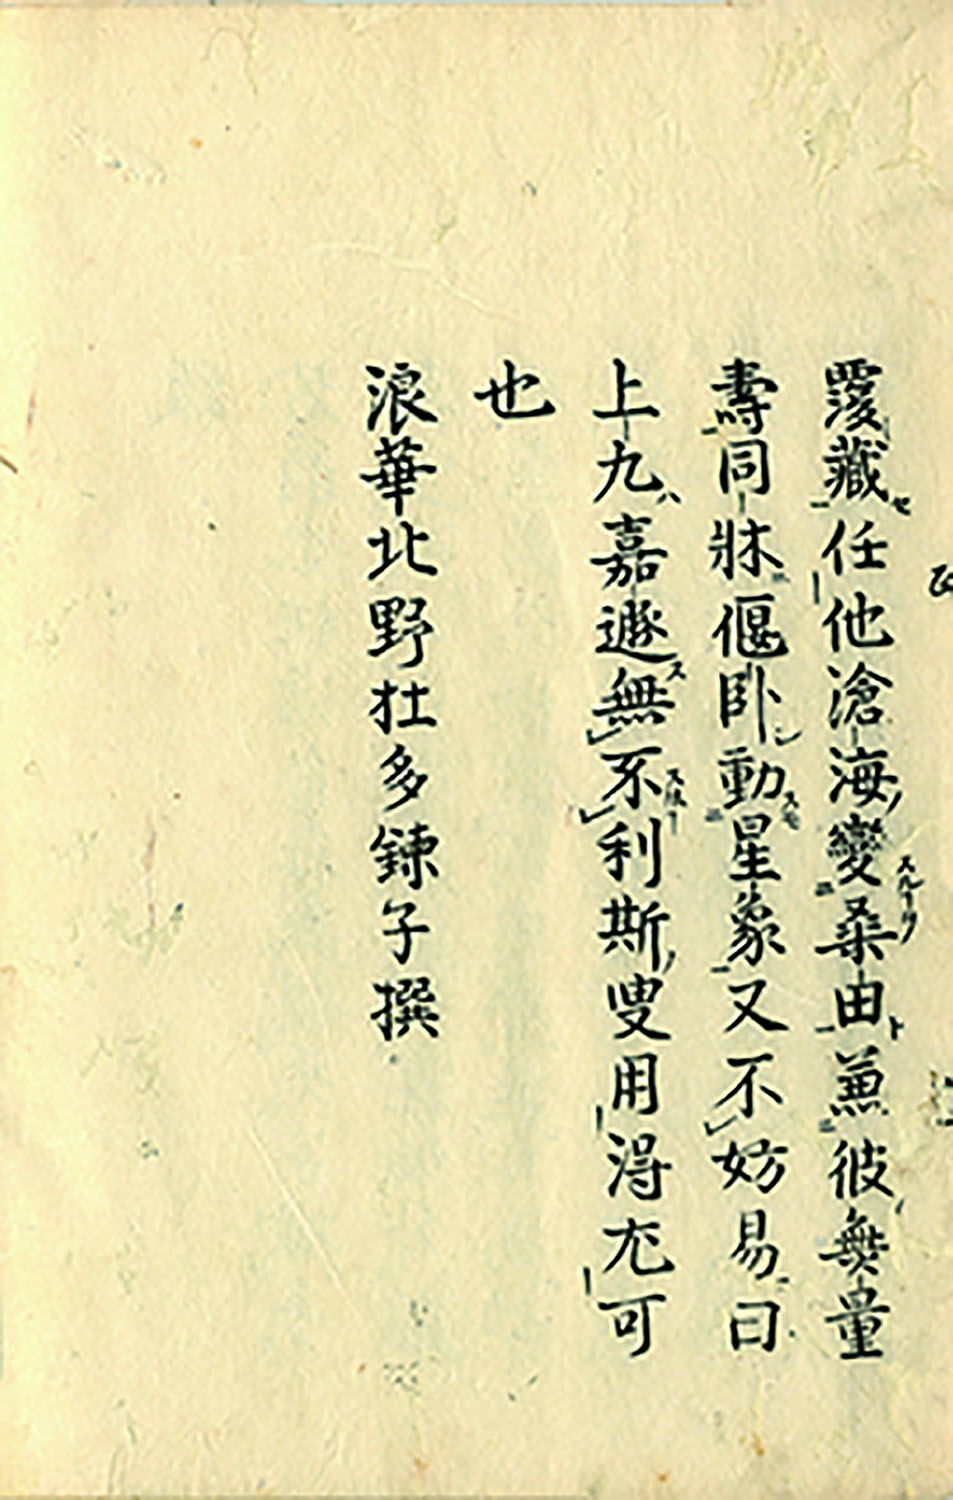 覆藏任他滄海變桑由兼彼無量
壽同牀偃卧動星象又不妨易曰
上九嘉遯無不利斯叟用得尤可
也
浪華北野杜多鍊子撰